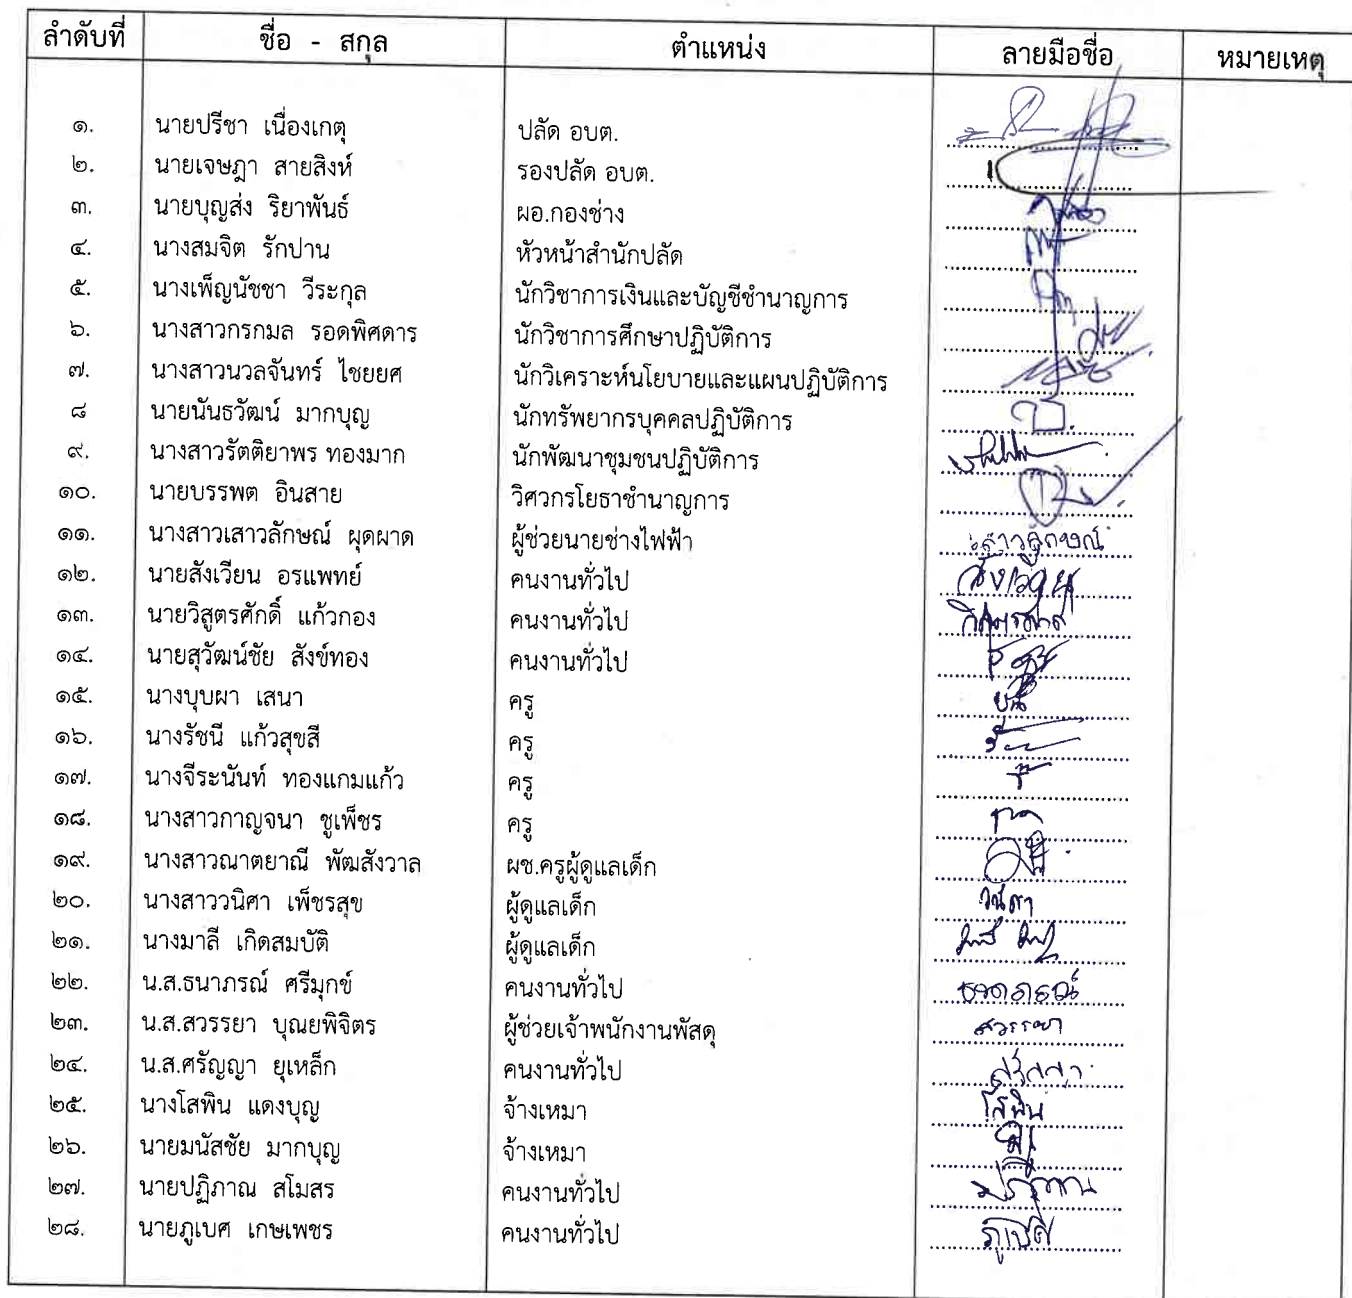 ลำดับที่ ชื่อ - สกุล ตำแหน่ง ลายมือชื่อ หมายเหตุ
๑. นายปรีชา เนื่องเกตุ ปลัด อบต.
๒. นายเจษฎา สายสิงห์ รองปลัด อบต.
๓. นายบุญส่ง ริยาพันธ์ ผอ.กองช่าง
๔. นางสมจิต รักปาน หัวหน้าสำนักปลัด
๕. นางเพ็ญนัชชา วีระกุล นักวิชาการเงินและบัญชีชำนาญการ
๖. นางสาวกรกมล รอดพิศดาร นักวิชาการศึกษาปฏิบัติการ
๗. นางสาวนวลจันทร์ ไชยยศ นักวิเคราะห์นโยบายและแผนปฏิบัติการ
๘ นายนันธวัฒน์ มากบุญ นักทรัพยากรบุคคลปฏิบัติการ
๙. นางสาวรัตติยาพร ทองมาก นักพัฒนาชุมชนปฏิบัติการ
๑๐. นายบรรพต อินสาย วิศวกรโยธาชำนาญการ
๑๑. นางสาวเสาวลักษณ์ ผุดผาด ผู้ช่วยนายช่างไฟฟ้า เสาวลักษณ์
๑๒. นายสังเวียน อรแพทย์ คนงานทั่วไป สังเวียน
๑๓. นายวิสูตรศักดิ์ แก้วกอง คนงานทั่วไป
๑๔. นายสุวัฒน์ชัย สังข์ทอง คนงานทั่วไป
๑๕. นางบุบผา เสนา ครู
๑๖. นางรัชนี แก้วสุขสี ครู
๑๗. นางจีระนันท์ ทองแกมแก้ว ครู
๑๘. นางสาวกาญจนา ชูเพ็ชร ครู
๑๙. นางสาวณาตยาณี พัฒสังวาล ผช.ครูผู้ดูแลเด็ก
๒๐. นางสาววนิศา เพ็ชรสุข ผู้ดูแลเด็ก วนิศา
๒๑. นางมาลี เกิดสมบัติ ผู้ดูแลเด็ก
๒๒. น.ส.ธนาภรณ์ ศรีมุกข์ คนงานทั่วไป ธนาภรณ์
๒๓. น.ส.สวรรยา บุณยพิจิตร ผู้ช่วยเจ้าพนักงานพัสดุ สวรรยา
๒๔. น.ส.ศรัญญา ยุเหล็ก คนงานทั่วไป ศรัญญา
๒๕. นางโสพิน แดงบุญ จ้างเหมา โสพิน
๒๖. นายมนัสชัย มากบุญ จ้างเหมา
๒๗. นายปฏิภาณ สโมสร คนงานทั่วไป ปฏิภาณ
๒๘. นายภูเบศ เกษเพชร คนงานทั่วไป ภูเบศ